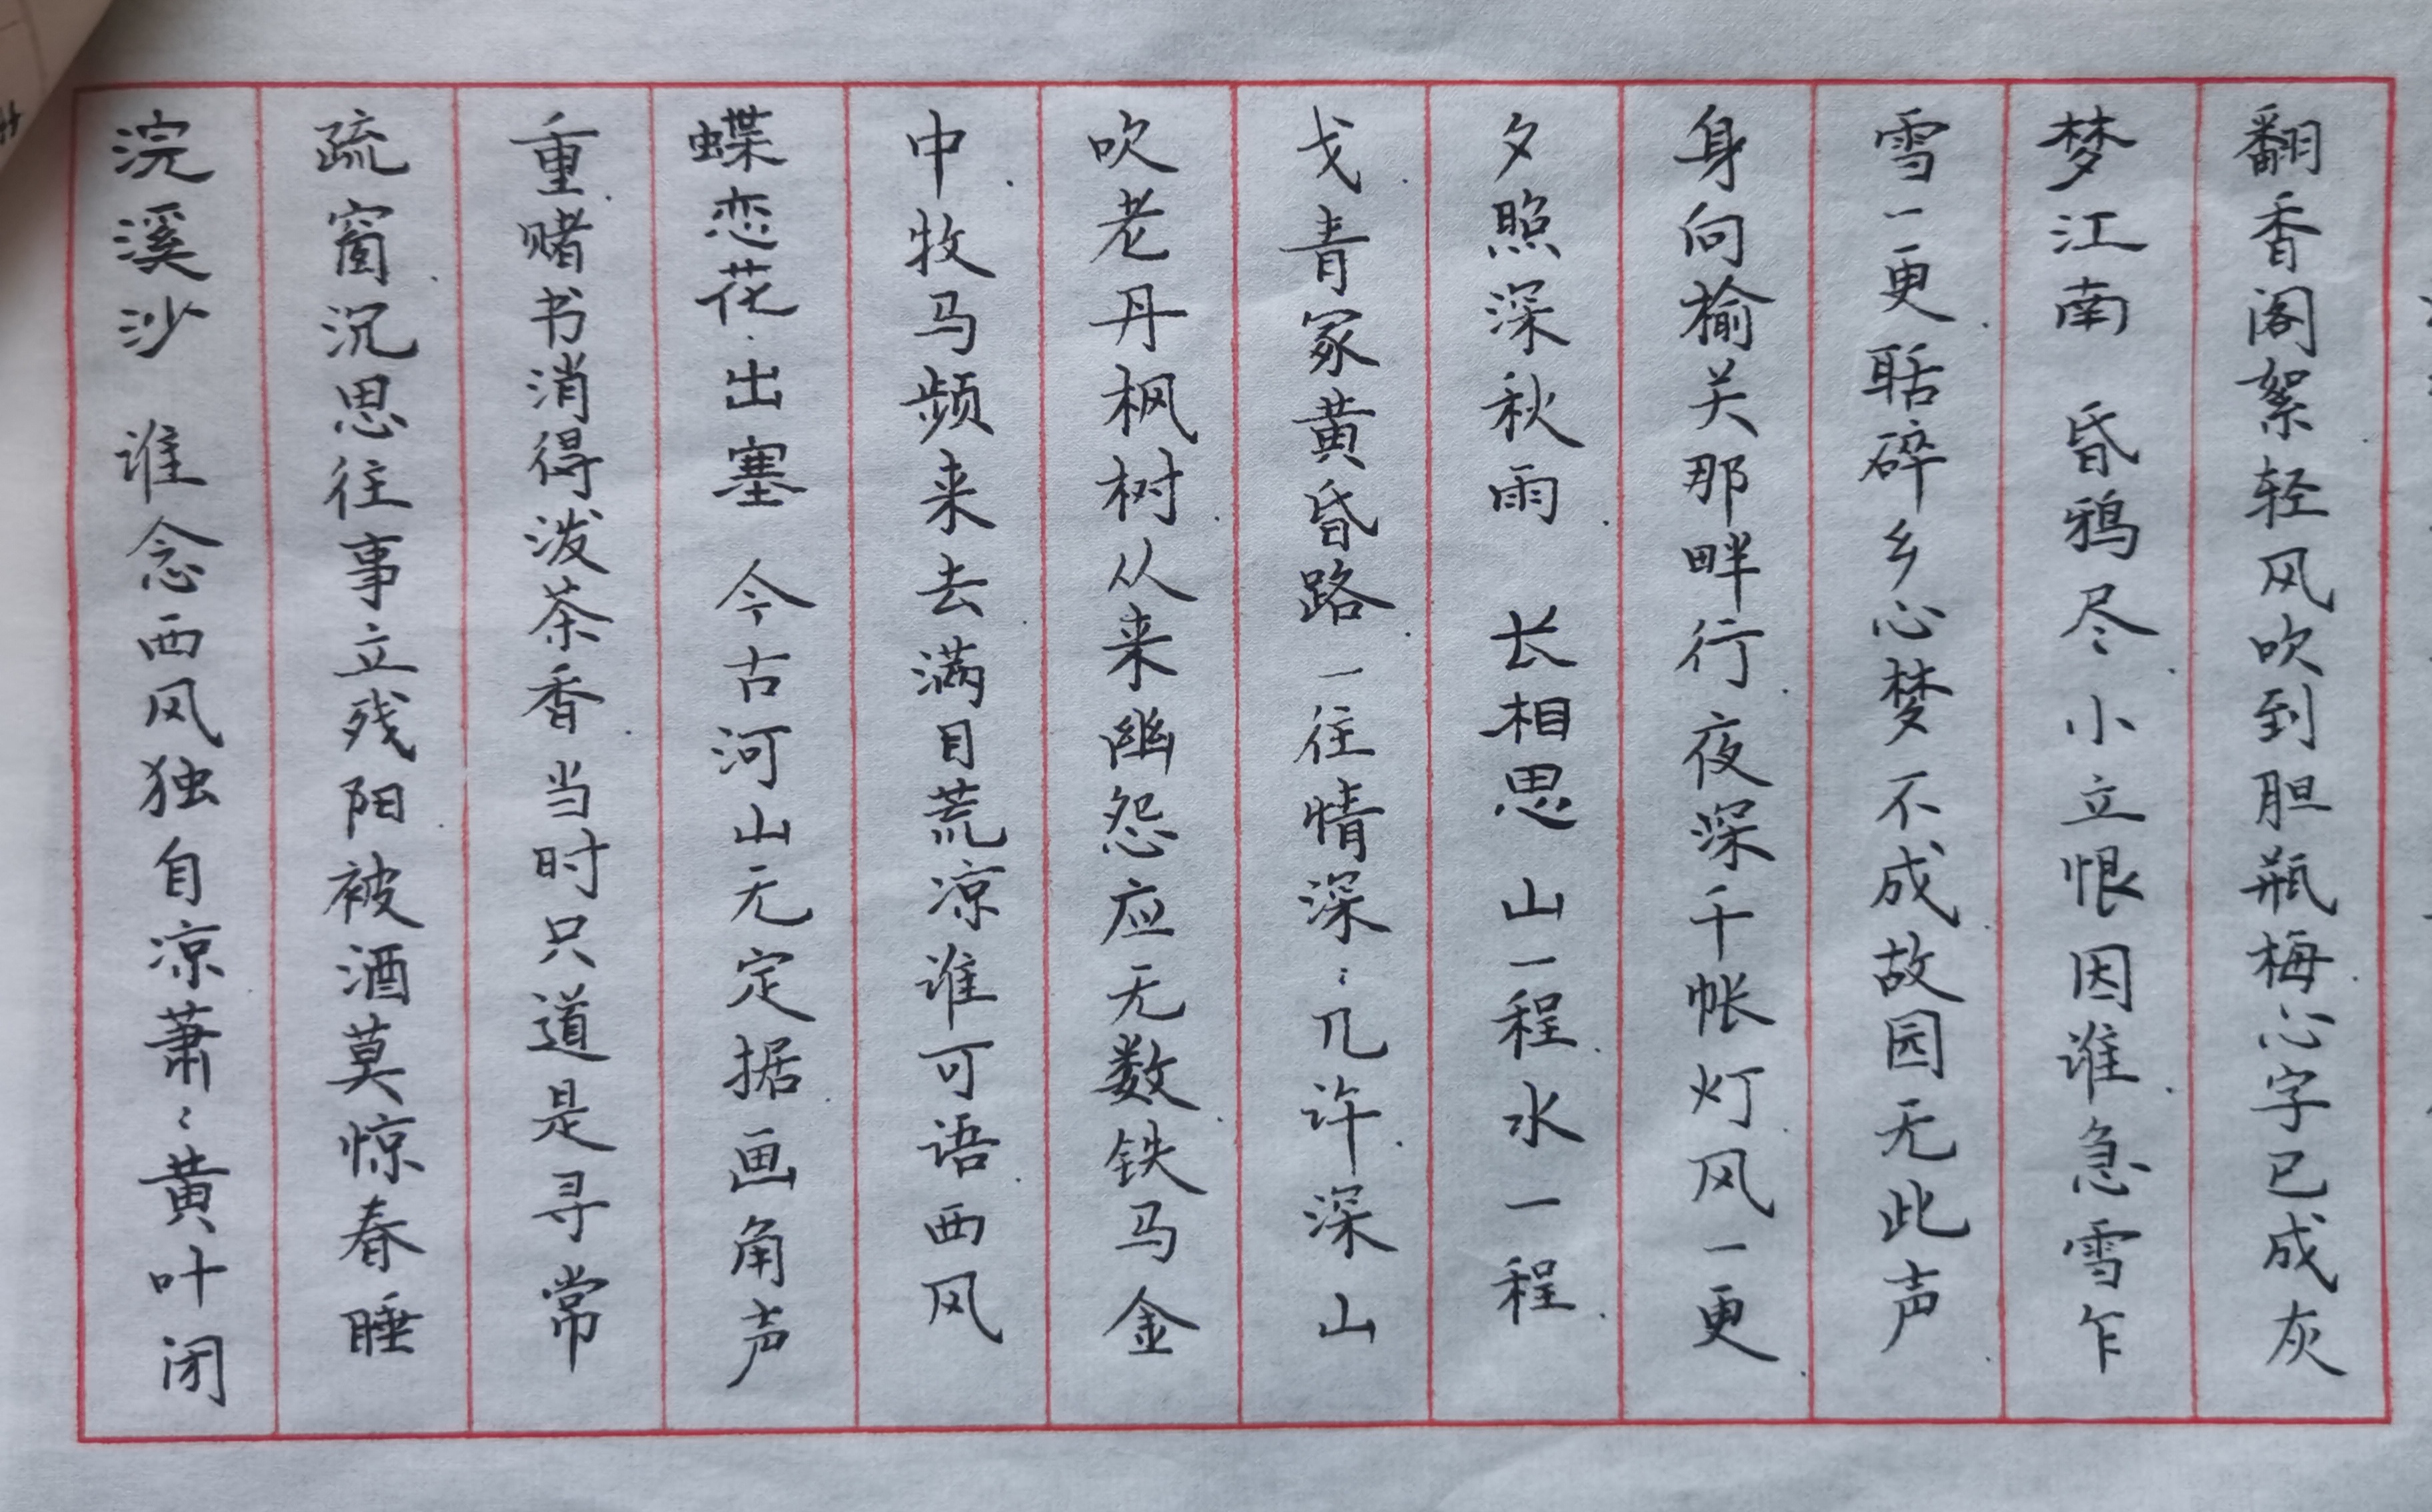 浣溪沙 谁念西风独自凉萧〻黄叶闭
疏窗沉思往事立残阳被酒莫惊春睡
重赌书消得泼茶香当时只道是寻常
蝶恋花·出塞 今古河山无定据画角声
中牧马频来去满目荒凉谁可语西风
吹老丹枫树从来幽怨应无数铁马金
戈青冢黄昏路一往情深〻几许深山
夕照深秋雨 长相思 山一程水一程
身向榆关那畔行夜深千帐灯风一更
雪一更聒碎乡心梦不成故园无此声
梦江南 昏鸦尽小立恨因谁急雪乍
翻香阁絮轻风吹到胆瓶梅心字已成灰